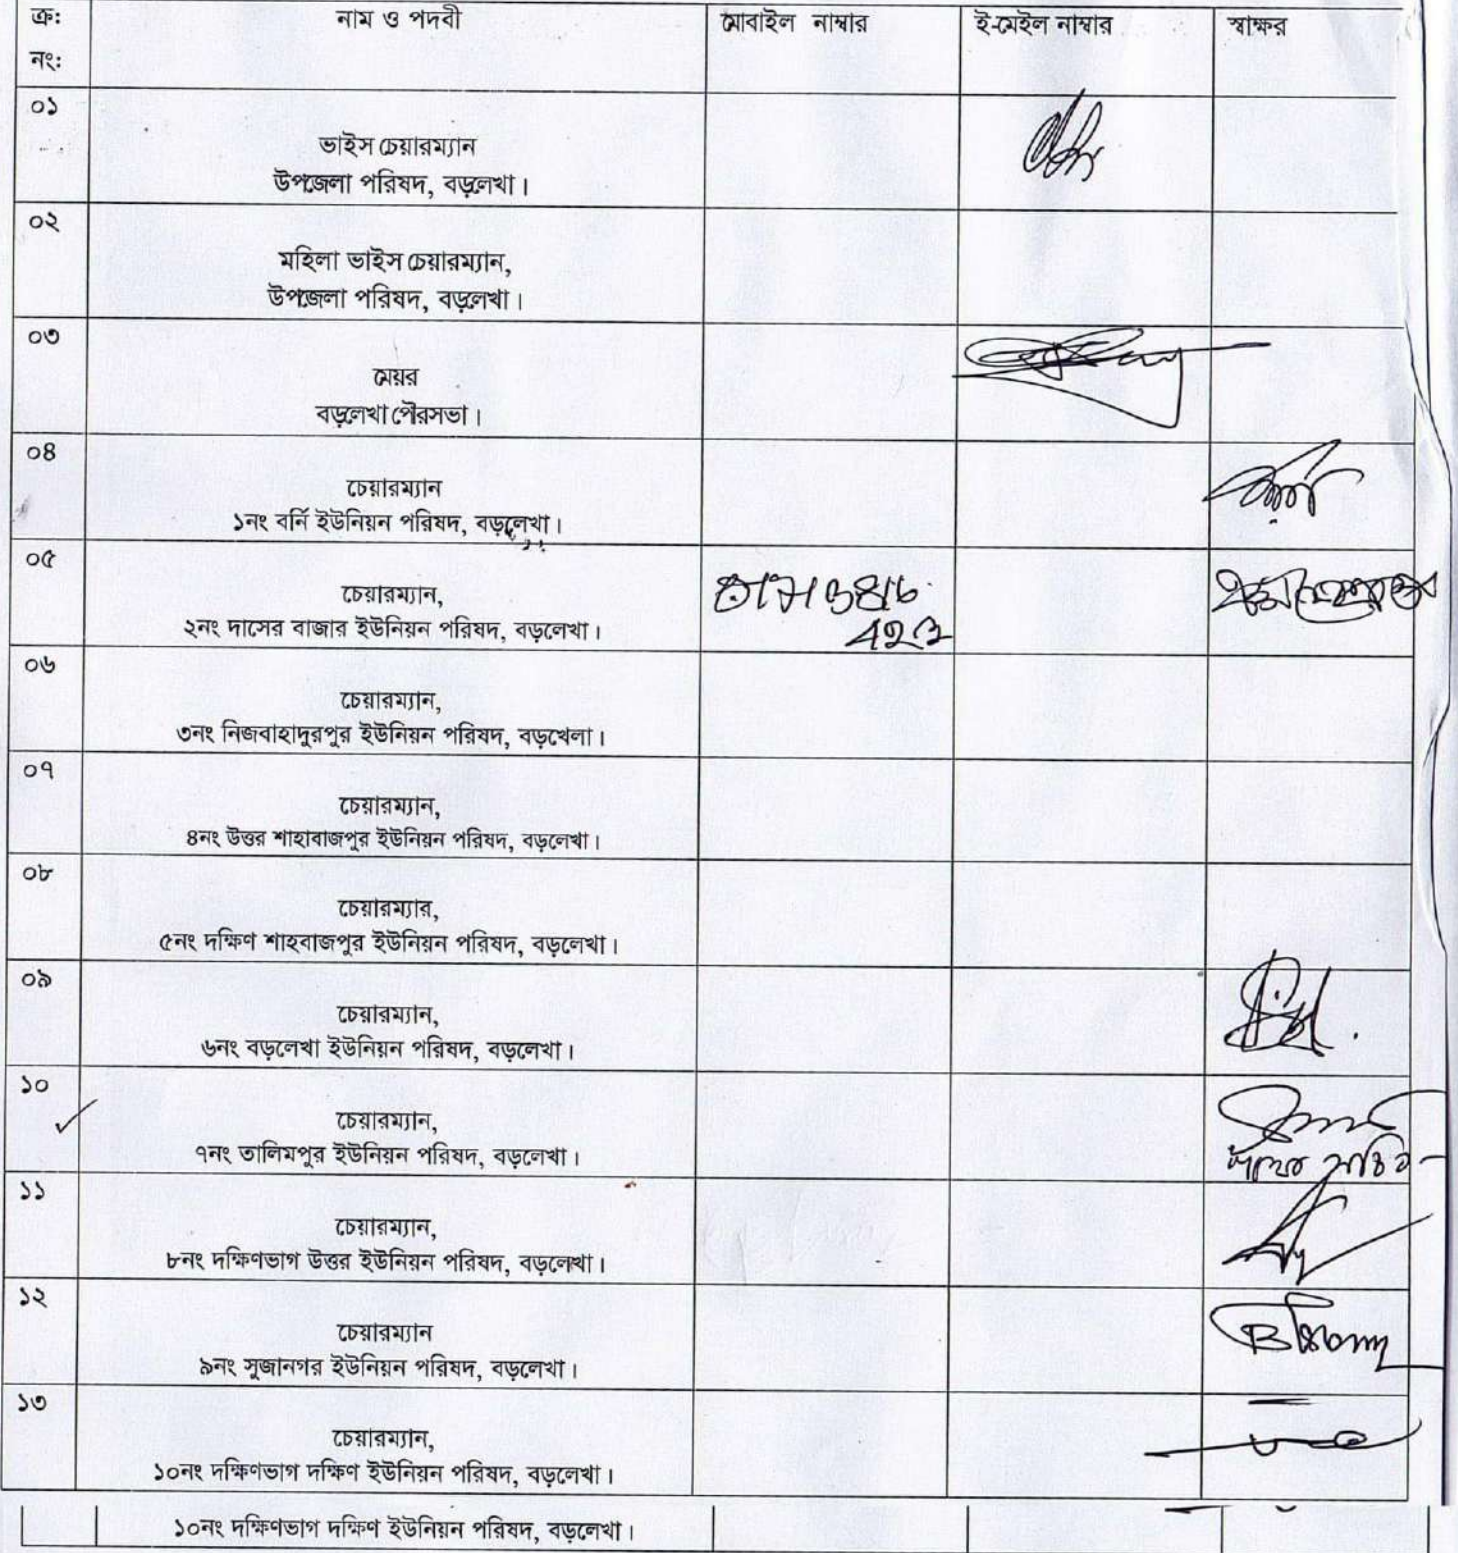 ক্র: নাম ও পদবী মোবাইল নাম্বার ই-মেইল নাম্বার স্বাক্ষর
নং:
০১
ভাইস চেয়ারম্যান
উপজেলা পরিষদ, বড়লেখা।
০২
মহিলা ভাইস চেয়ারম্যান,
উপজেলা পরিষদ, বড়লেখা।
০৩
মেয়র
বড়লেখা পৌরসভা।
০৪
চেয়ারম্যান
১নং বর্নি ইউনিয়ন পরিষদ, বড়লেখা।
০৫
চেয়ারম্যান,
২নং দাসের বাজার ইউনিয়ন পরিষদ, বড়লেখা।
০৬
চেয়ারম্যান,
৩নং নিজবাহাদুরপুর ইউনিয়ন পরিষদ, বড়খেলা।
০৭
চেয়ারম্যান,
৪নং উত্তর শাহাবাজপুর ইউনিয়ন পরিষদ, বড়লেখা।
০৮
চেয়ারম্যার,
৫নং দক্ষিণ শাহবাজপুর ইউনিয়ন পরিষদ, বড়লেখা।
০৯
চেয়ারম্যান,
৬নং বড়লেখা ইউনিয়ন পরিষদ, বড়লেখা।
১০
চেয়ারম্যান,
৭নং তালিমপুর ইউনিয়ন পরিষদ, বড়লেখা।
১১
চেয়ারম্যান,
৮নং দক্ষিণভাগ উত্তর ইউনিয়ন পরিষদ, বড়লেখা।
১২
চেয়ারম্যান
৯নং সুজানগর ইউনিয়ন পরিষদ, বড়লেখা।
১৩
চেয়ারম্যান,
১০নং দক্ষিণভাগ দক্ষিণ ইউনিয়ন পরিষদ, বড়লেখা।
১০নং দক্ষিণভাগ দক্ষিণ ইউনিয়ন পরিষদ, বড়লেখা।